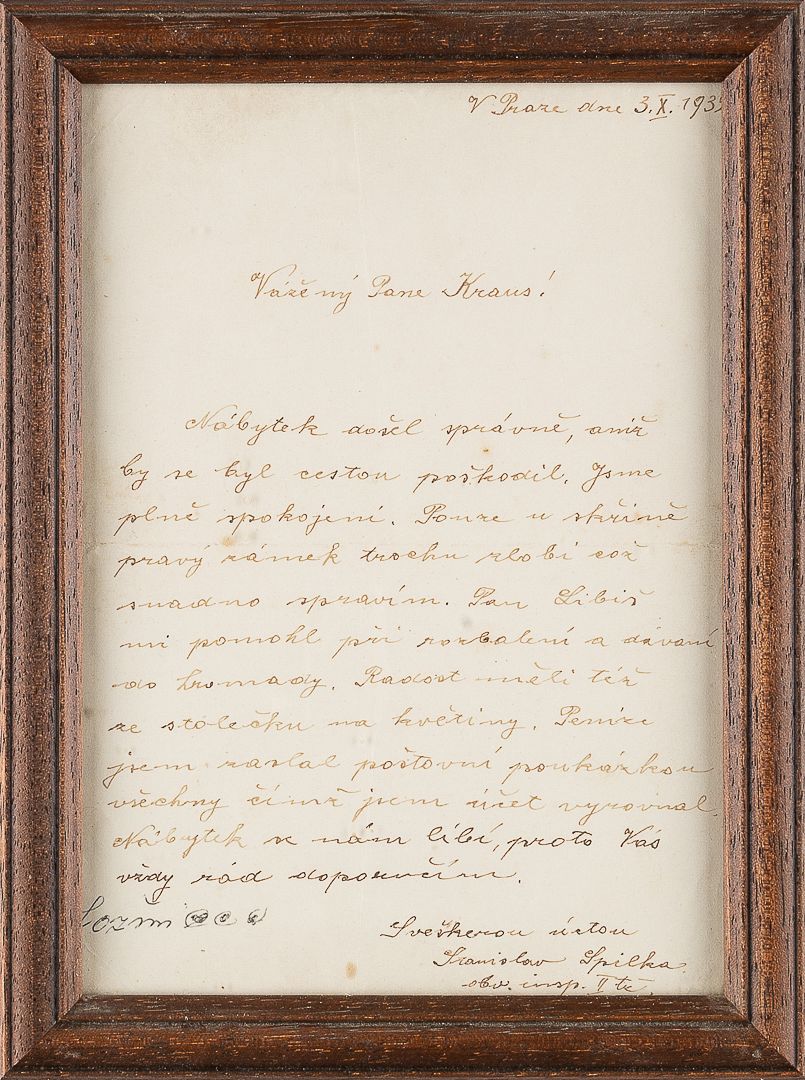 V Praze dne 3.X. 193
Vážený Pane Kraus!
Nábytek došel správně, aniž
by se byl cestou poškodil. Jsme
plně spokojeni. Pouze u skříně
pravý zámek trochu zlobí což
snadno spravím. Pan Libiš
mi pomohl při rozbalení a dávaní
do hromady. Radost měli též
ze stolečku na květiny. Peníze
jsem zaslal poštovní poukázkou
všechny čímž jsem účet vyrovnal.
Nábytek se nám líbí, proto Vás
vždy rád doporučím.
S veškerou úctou
Stanislav Spilka
obv. insp. II